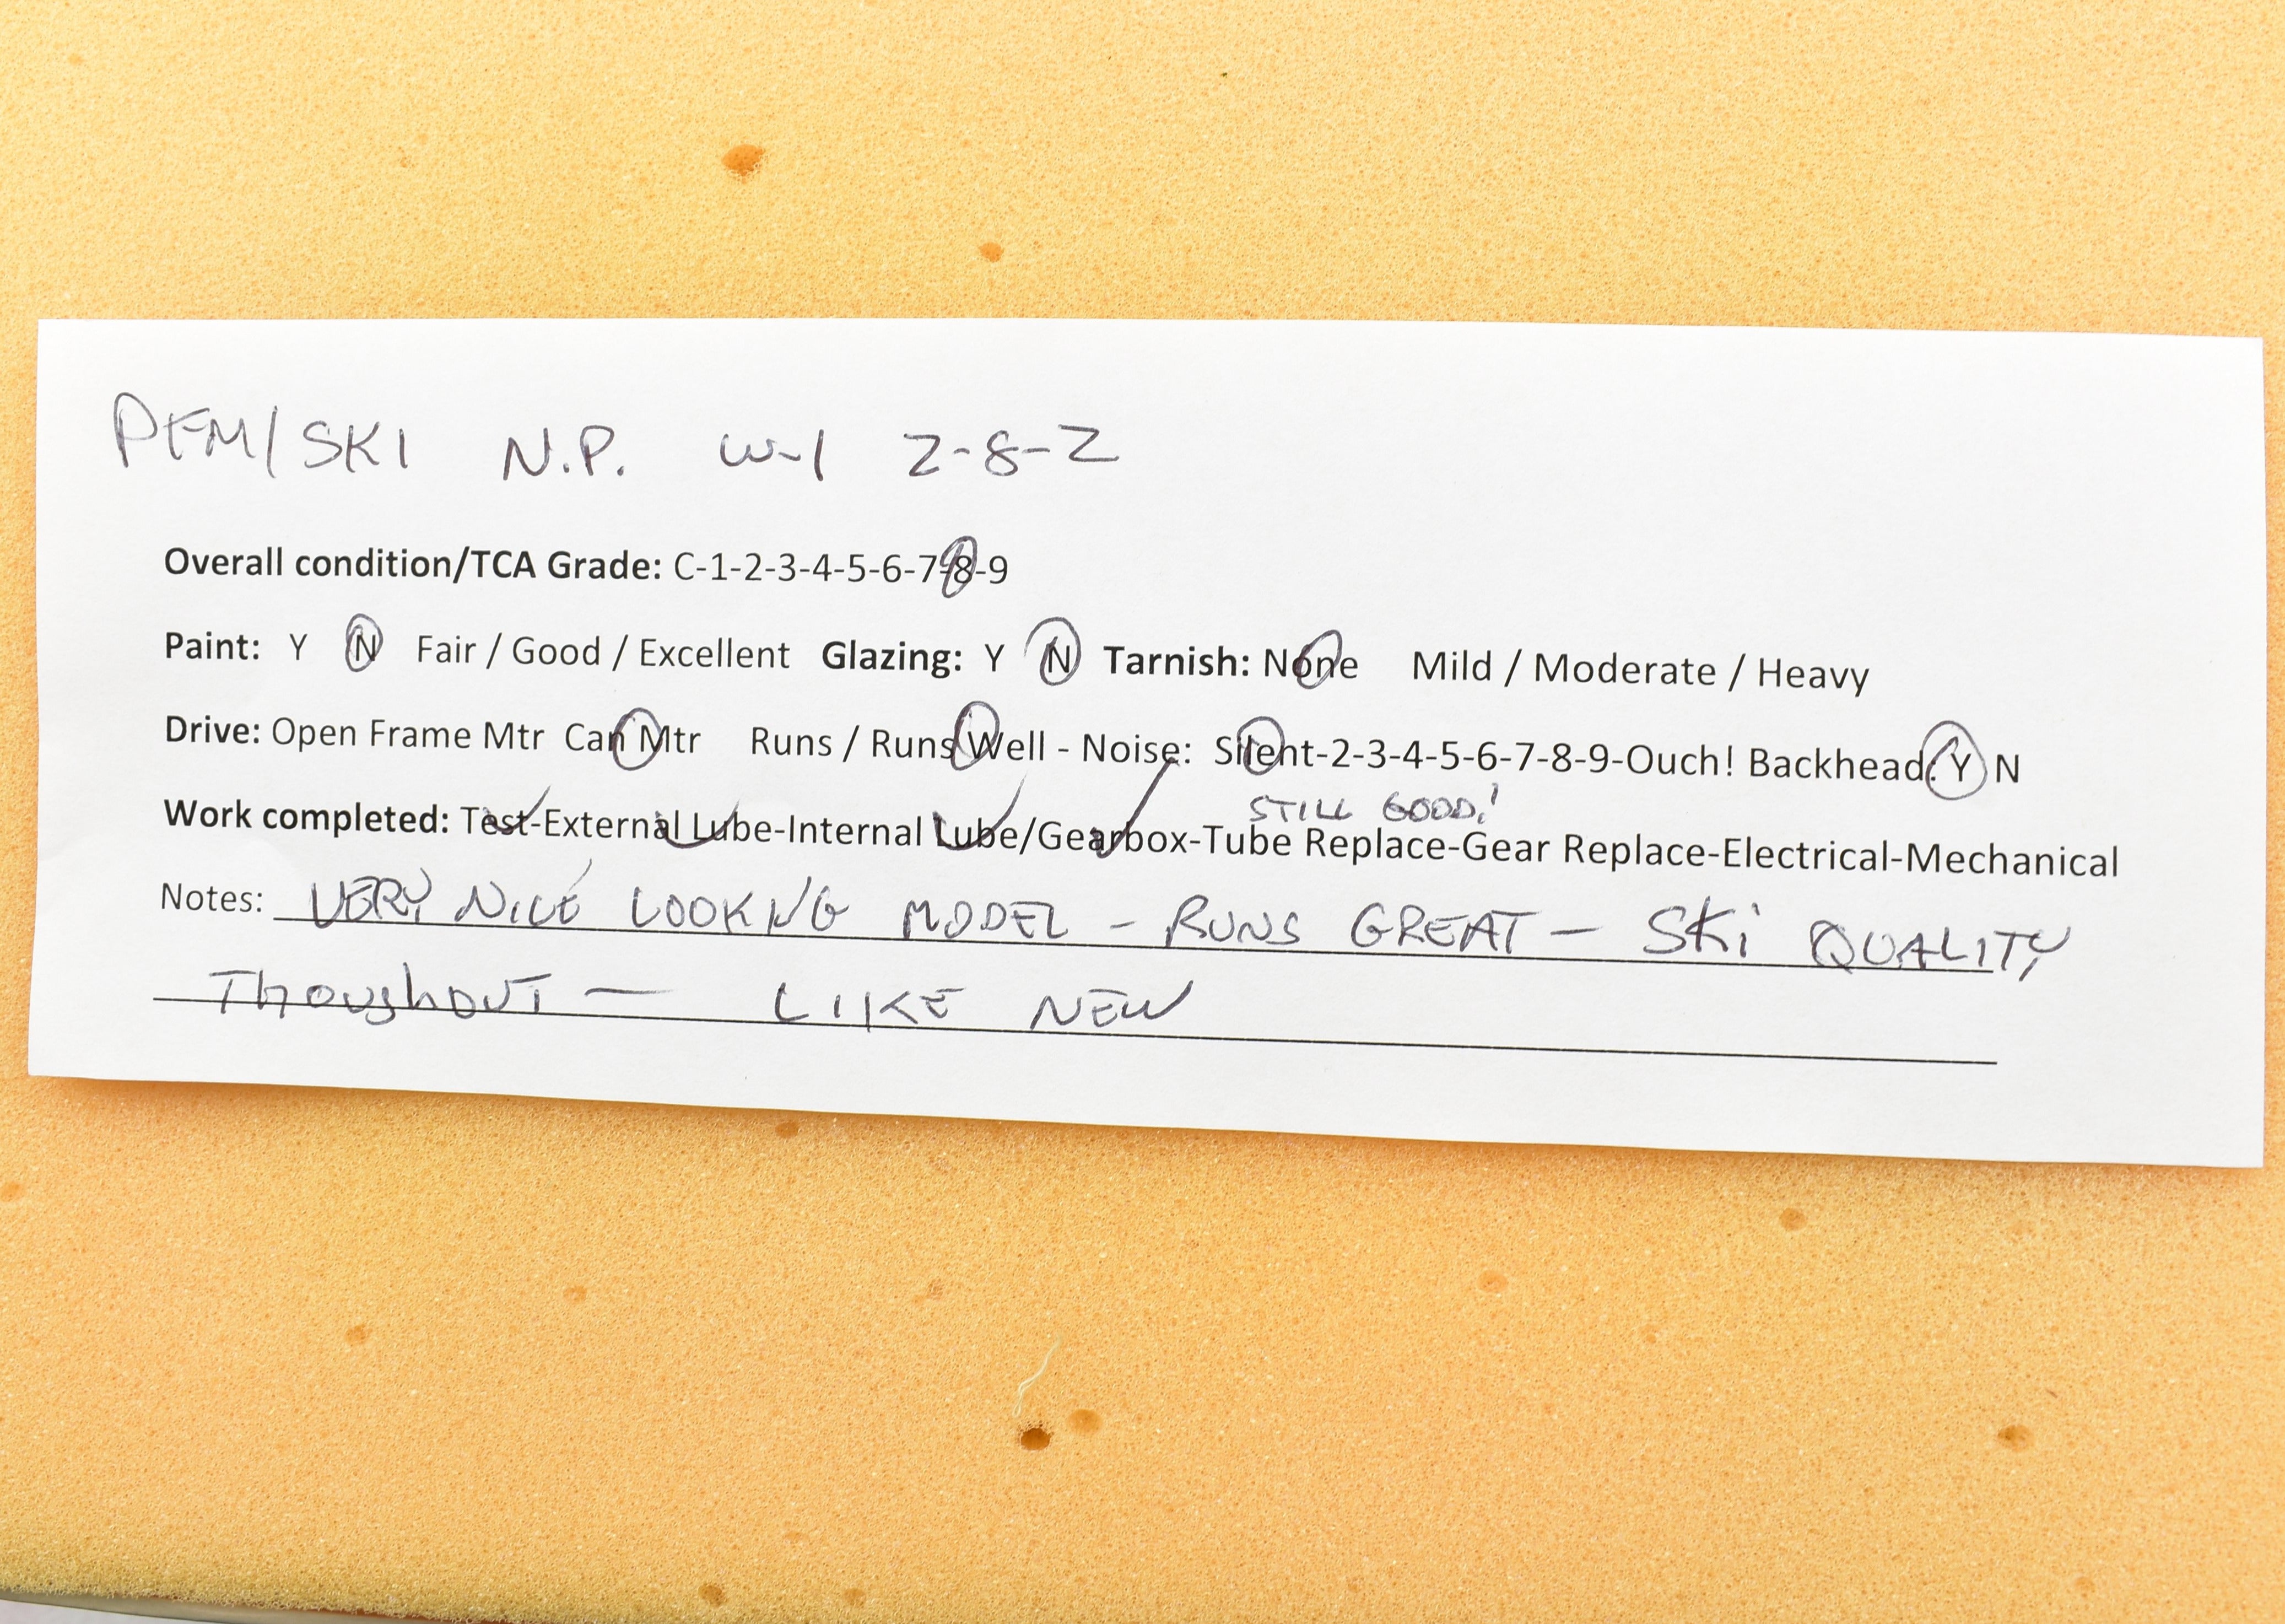 PFM/SKI N.P. W-1 2-8-2
Overall condition/TCA Grade: C-1-2-3-4-5-6-7-8-9
Paint: Y N Fair / Good / Excellent Glazing: Y N Tarnish: None Mild / Moderate / Heavy
Drive: Open Frame Mtr Can Mtr Runs / Runs Well - Noise: Silent-2-3-4-5-6-7-8-9-Ouch! Backhead: Y N
STILL GOOD!
Work completed: Test-External Lube-Internal Lube/Gearbox-Tube Replace-Gear Replace-Electrical-Mechanical
Notes: VERY NICE LOOKING MODEL - RUNS GREAT - SKi QUALITY
Thoughout - LIKE NEW